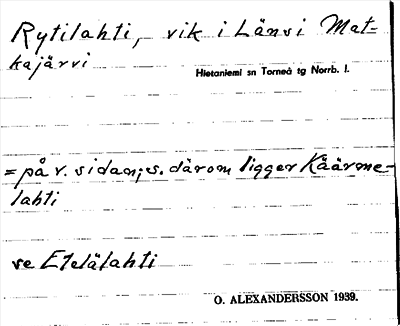 Rytilahti, vik i Länsi Mat-
kajärvi
Hietaniemi sn Torneå tg Norrb. l.
= på v. sidan; s. därom ligger Käärme-
lahti
se Etelälahti
O. ALEXANDERSSON 1939.